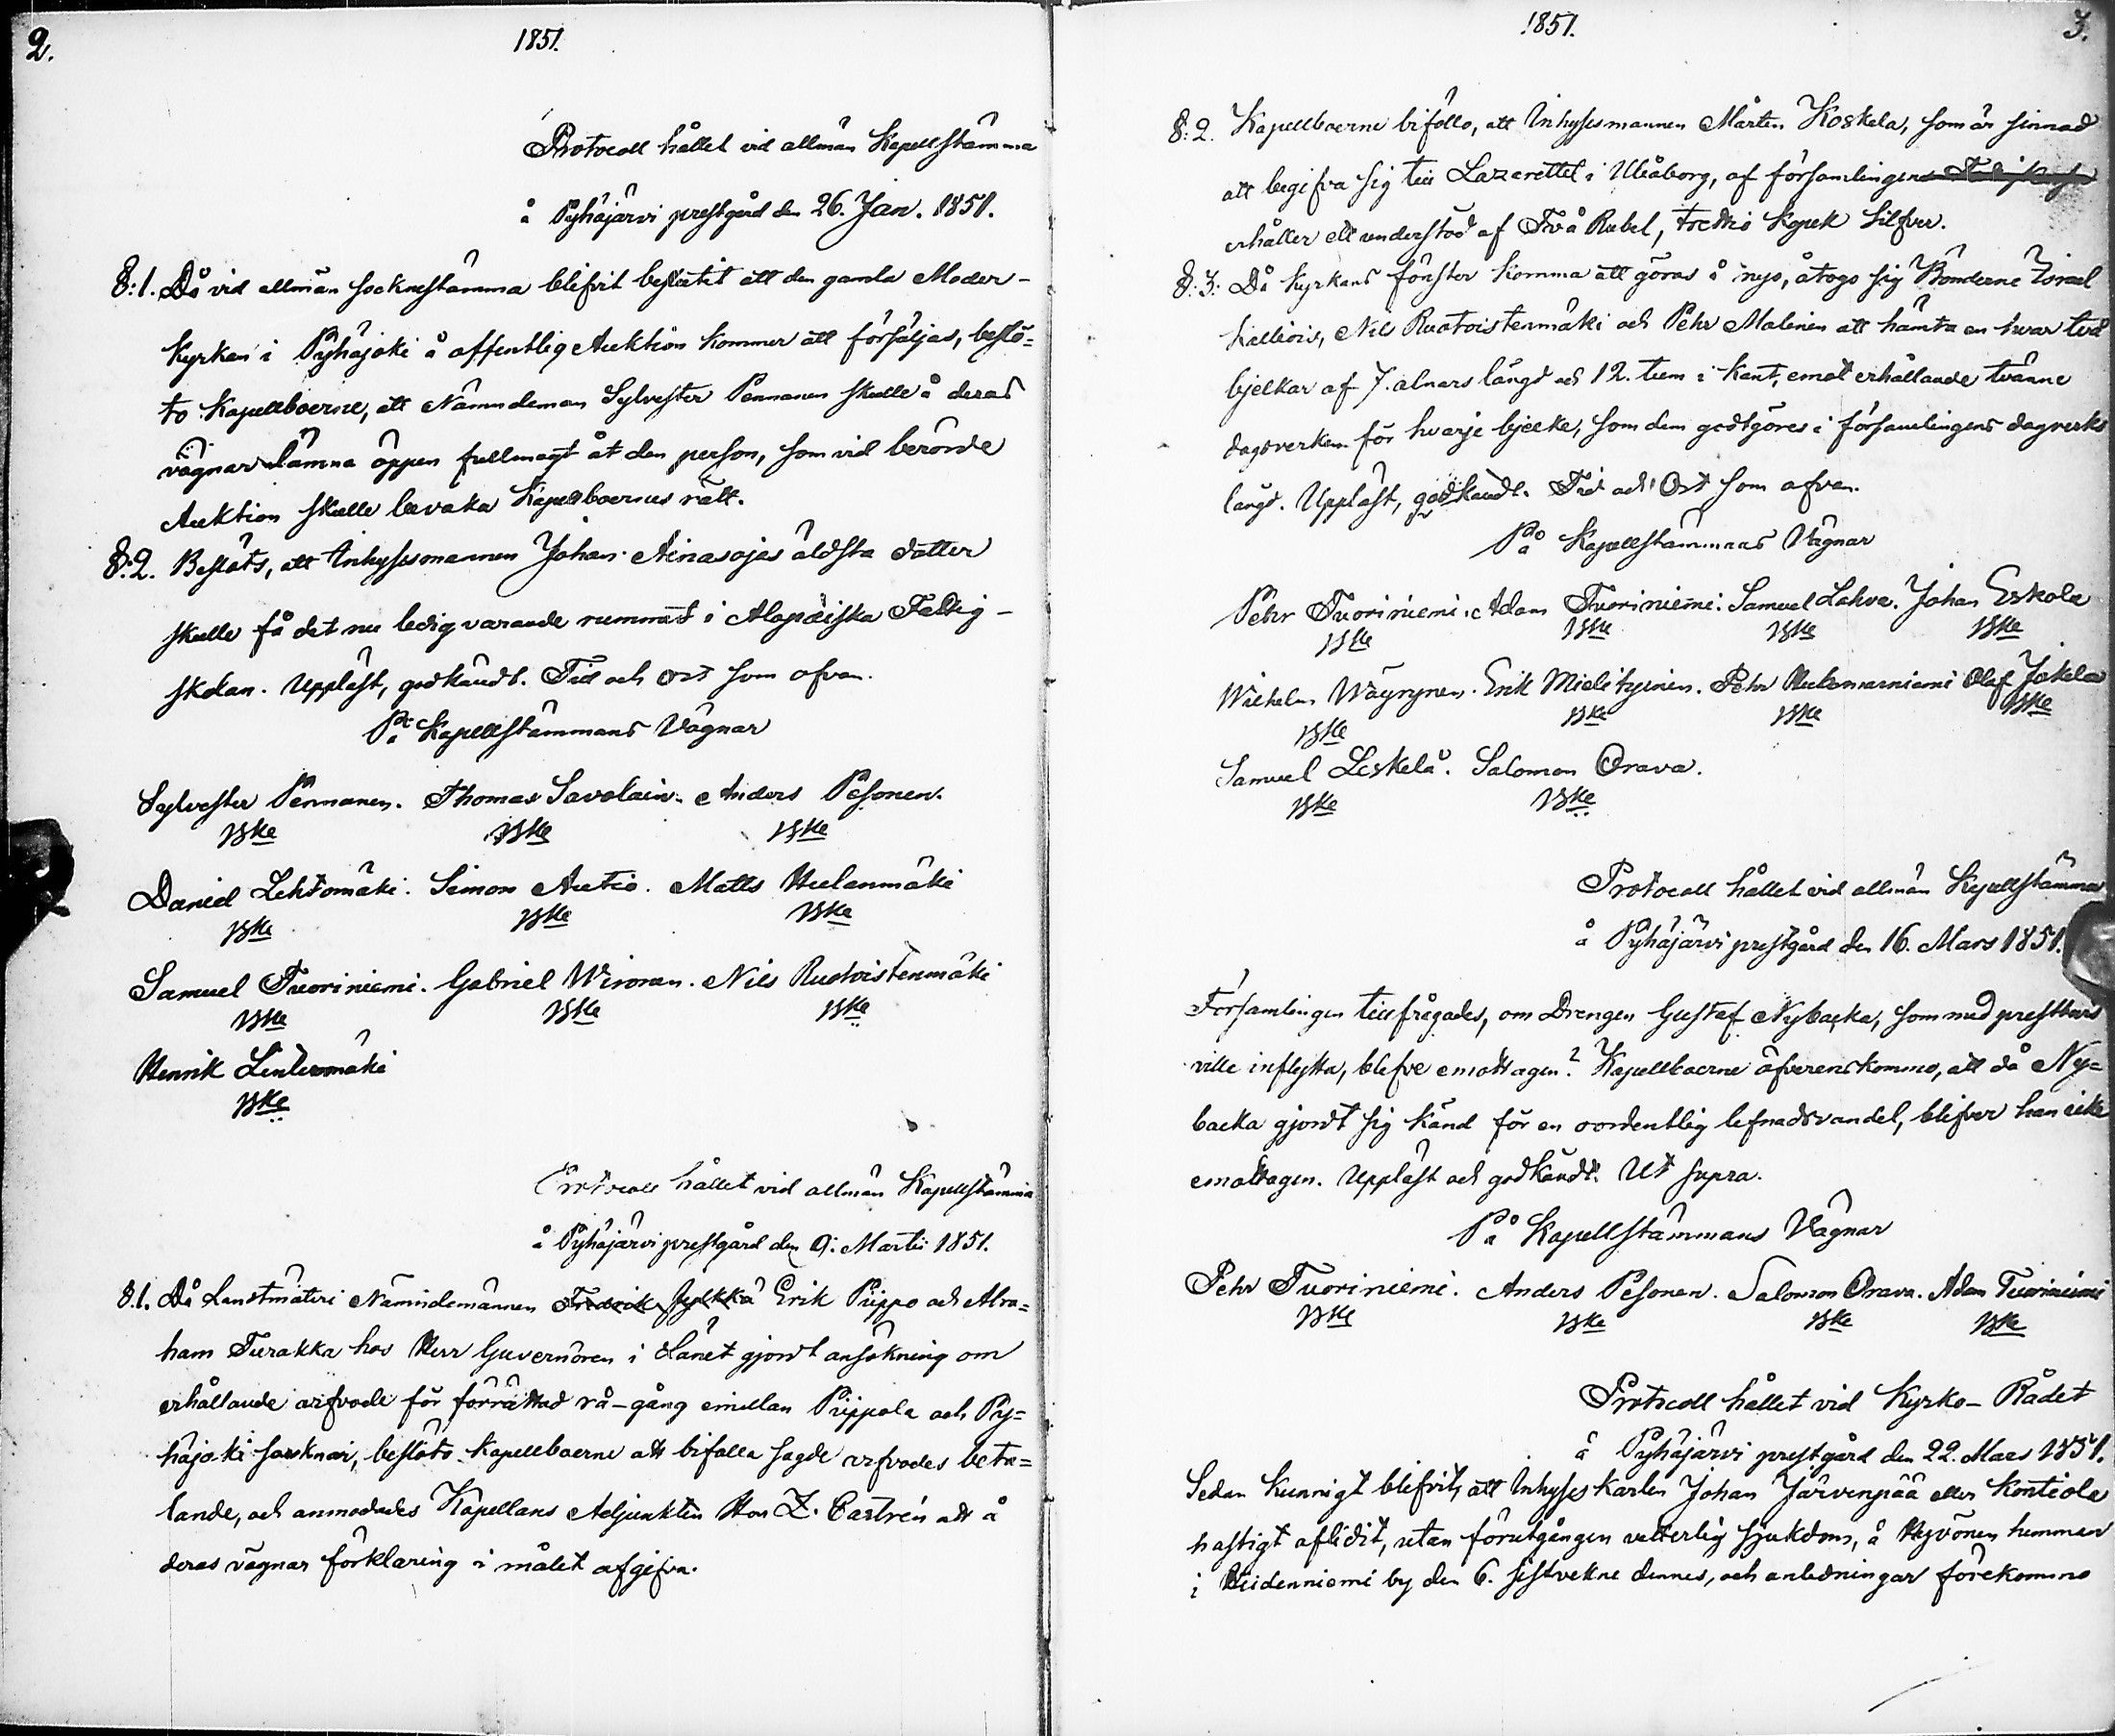 2.
1851.
Protocoll hållet vid allmän Kapellstämma
å Pyhäjärvi prestgård den 26. Jan. 1851.
§:1. Då vid allmän socknestämma blifvit beslutit att den gamla Moder-
kyrkan i Pyhäjoki å offentlig Auktion kommer att försäljas, beslö=
to Kapellboerne, att Nämndeman Sylvester Pennanen skulle å deras
vägnar lämna öppen fullmagt åt den person, som vid berörde
Auktion skulle bevaka Kapellboernes rätt.
§:2. Beslöts, att Inhysesmannen Johan Ainasojas äldsta dotter
skulle få det nu ledig varande rummet i Alapäiska Fattig-
skolan. Uppläst, godkändt. Tid och Ort som ofvan.
På Kapellstämmans Vägnar
Sylvester Pennanen. Thomas Savolain. Anders Pesonen.
Bmke Bmke Bmke
Daniel Lehtomäki. Simon Autio. Matts Hulanmäki
Bmke Bmke Bmke
Samuel Tuoriniemi. Gabriel Wironen. Nils Ruotoistenmäki
Bmke Bmke Bmke
Henrik Lintumäki
Bmke
Protocoll hållet vid allmän Kapellstämma
å Pyhäjärvi prestgård den 9. Martii 1851.
§1. Då Landtmäteri Nämndemännen Fredrik Jylkkä Erik Piippo och Abra=
ham Turakka hos Herr Guvernören i Länet gjordt ansökning om
erhållande arfvode för förrättad rå-gång emellan Piippola och Py=
häjoki socknar, beslöto Kapellboerne att bifalla sagde arfvodes beta=
lande, och anmodades Kapellans Adjunkten Herr Z. Castrén att å
deras vägnar förklaring i målet afgifva.
1851.
3.
§:2. Kapellboerne biföllo, att Inhysesmannen Mårten Koskela, som är sinnad
att begifva sig till Lazarettet i Uleåborg, af församlingens
erhåller ett understöd af Två Rubel, trettio Kopek Silfver.
§:3. Då Kyrkans fönster komma att göras å nyo, åtogo sig Bönderne Israel
Kallioin, Nils Ruotoistenmäki och Pehr Malinen att hämta en hvar två
bjelkar af 7. alnars längd och 12. tum i kant, emot erhållande tvänne
dagsverken för hvarje bjelke, som dem godtgöres i församlingens dagverks
längd. Uppläst, godkändt. Tid och Ort som ofvan.
På Kapellstämmans Vägnar
Pehr Tuoriniemi. Adam Tuoriniemi. Samuel Lahva. Johan Eskola
Bmke Bmke Bmke Bmke
Wilhelm Wäyrynen. Erik Mielityinen. Pehr Hukomarniemi Olof Jokela
Bmke Bmke Bmke Bmke
Samuel Leskelä. Salomon Orava.
Bmke Bmke
Protocoll hållet vid allmän Kapellstämma
å Pyhäjärvi prestgård den 16. Mars 1851.
Församlingen tillfrågades, om Drengen Gustaf Nybacka, som med prestbevis
ville inflytta, blefve emottagen? Kapellboerne öfverenskommo, att då Ny=
backa gjordt sig känd för en oordentlig lefnadsvandel, blifver han icke
emottagen. Uppläst och godkändt. Ut supra.
På Kapellstämmans Vägnar
Pehr Tuoriniemi. Anders Pesonen. Salomon Orava. Adam Tuoriniemi
Bmke Bmke Bmke Bmke
Protocoll hållet vid Kyrko-Rådet
å Pyhäjärvi prestgård den 22. Mars 1851.
Sedan kunnigt blifvit, att Inhyses Karlen Johan Järvenpää eller Kontiola
hastigt aflidit, utan förutgången veterlig sjukdom, å Hyvönen hemman
i Hiidenniemi by den 6. sistvekne dennes, och anledningar förekommo